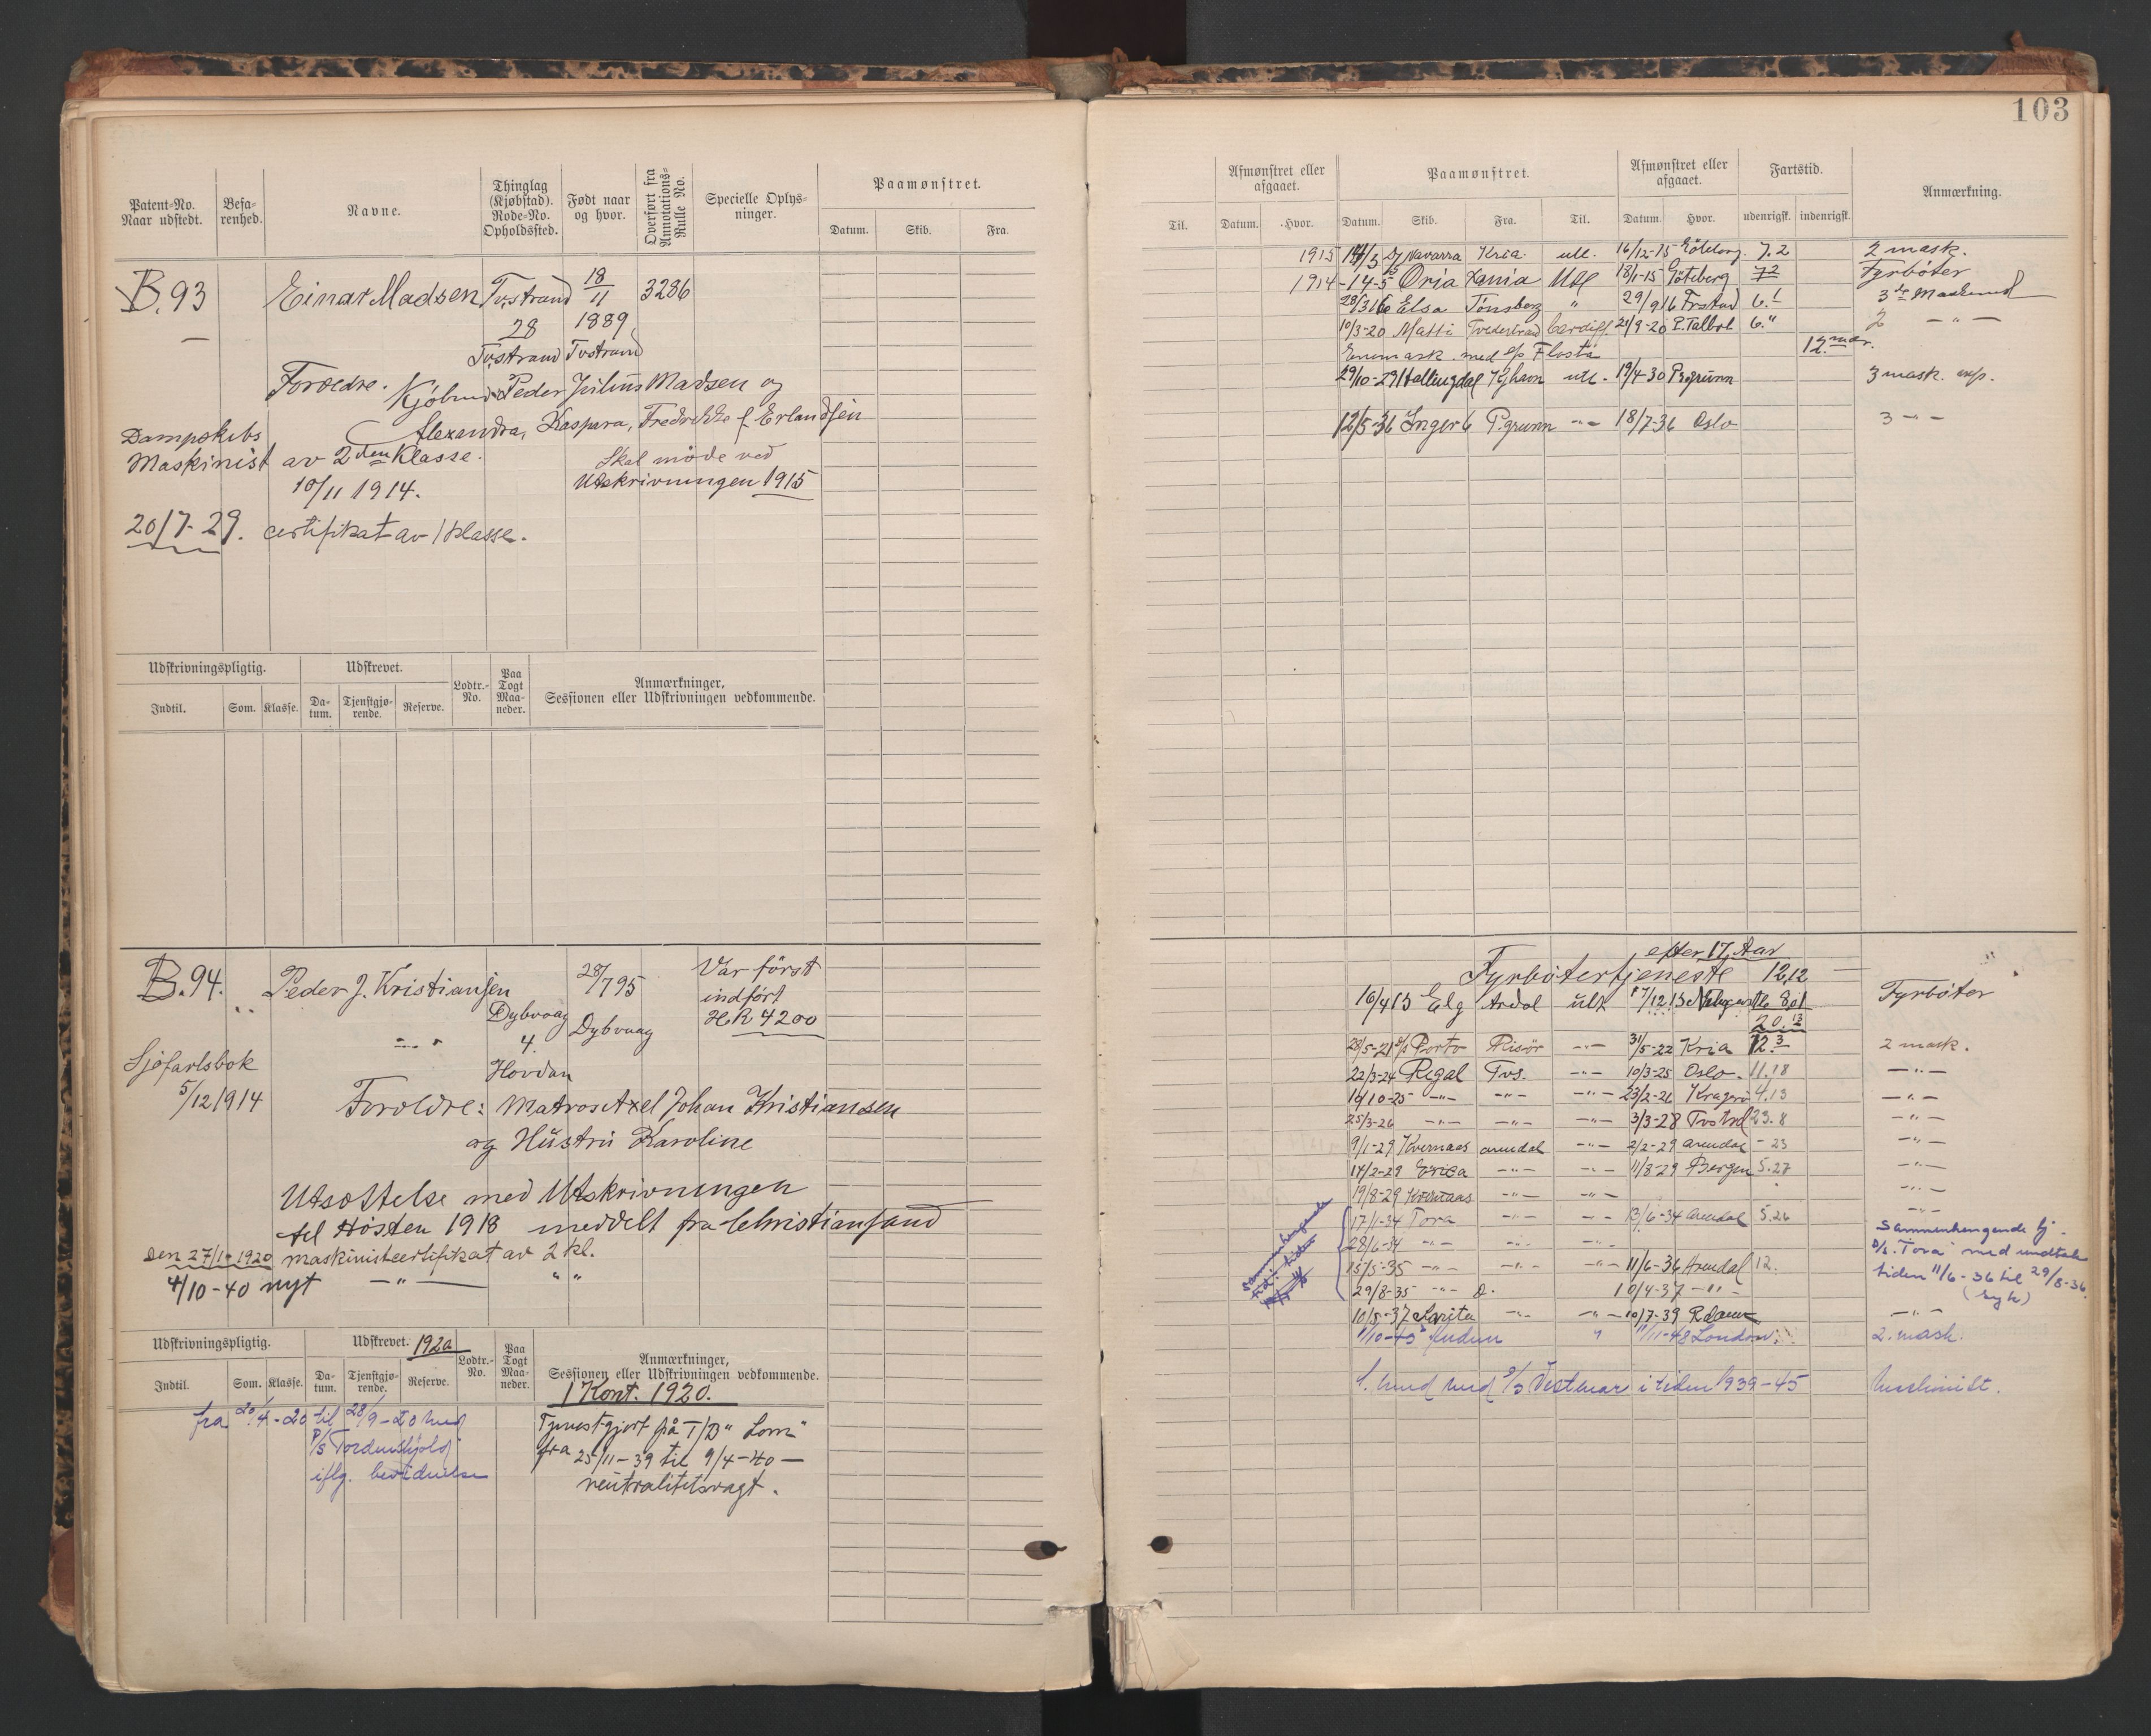 103
Patent-No.
Naar udstedt.
Befa-
renhed.
Navne.
Thinglag
(Kjøbstad).
Rode-No.
Opholdssted.
Født naar
og hvor.
Overført fra
Annotations-
Rulle No.
Specielle Oplys-
ninger.
Paamønstret.
Datum. Skib. Fra.
B. 93 Einar Madsen Tvstrand 18/11 3286
28 1889
Tvstrand Tvstrand
Forældre. Kjøbmd. Peder Julius Madsen og
Alexandra, Kaspara, Fredrikke f. Erlandsen
Dampskibs
Maskinist av 2den Klasse.
10/11 1914.
Skal møde ved
Utskrivningen 1915
20/7-29. certifikat av 1 klasse.
Udskrivningspligtig. Udskrevet. Lodtr.-No. Paa Togt Maa-neder. Anmærkninger,
Sessionen eller Udskrivningen vedkommende.
Indtil. Som. Klasse. Da-tum. Tjenstgjø-rende. Reserve.
B. 94. Peder J. Kristiansen 28/7 95 Var først
indført
HR 4200
Dybvaag
4.
Hovdan
Dybvaag
Sjøfartsbok
5/12 1914
Forældre: Matros Axel Johan Kristiansen
og Hustru Karoline
Utsættelse med Utskrivningen
til Høsten 1918 meddelt fra Christiansand
den 27/1-1920 maskinistcertifikat av 2 kl.
4/10-40 nyt —"— " "
Udskrivningspligtig. Udskrevet. 1920 Lodtr.-No. Paa Togt Maa-neder. Anmærkninger,
Sessionen eller Udskrivningen vedkommende.
Indtil. Som. Klasse. Da-tum. Tjenstgjø-rende. Reserve.
1 Kont. 1920.
fra 20/4-20 til 28/9-20 med
P/S Tordenskjold
iflg. bevidnelse
Tjenestgjort på T/B "Lom"
fra 25/11-39 til 9/4-40 —
neutralitetsvagt.
Afmønstret eller
afgaaet.
Paamønstret.
Afmønstret eller
afgaaet.
Fartstid.
Anmærkning.
Til. Datum. Hvor. Datum. Skib. Fra. Til. Datum. Hvor. udenrigsk. indenrigsk.
1915 Navarra Kria. utl. 16/12-15 Göteborg 7.2 2 mask.
1914 -14-5 Oria Kania Utl 18/1-15 Göteberg 7 2 Fyrbøter
28/3 16 Elsa Tønsberg " 29/9 16 Frstad 6.1 3de Maskinist
10/3-20 Matti Tvedestrand Cardiff 21/9-20 P. Talbot 6." 2 —"—
Enemask. med s/s Flosta 12 mdr.
29/10-29 Hallingdal Kjhavn utl. 19/4-30 Prsgrunn 3 mask. asp.
12/5-36 Inger 6 P.grunn —"— 18/7-36 Oslo 3 —"—
efter 17. Aar
Fyrbøtertjeneste 12,12
16/4 13 Elg Ardal utl 17/12 13 8,1 Fyrbøter
20.13
28/5-21 s/s Porto Risør —"— 31/5-22 Kria 12.3 2 mask.
22/3-24 Regal Tvs. —"— 10/3-25 Oslo. 11.18 —"—
10/10-25 —"— —"— —"— 23/2-26 Kragerø 4.13 —"—
25/3-26 —"— —"— —"— 3/3-28 Tvstrd 23.8 —"—
9/1-29 Kvernaas arendal —"— 2/2-29 arendal - 23 —"—
14/2-29 Erica —"— —"— 11/8-29 Bergen 5.27 —"—
19/8-29 Kvernaas —"— —"— —"—
17/1-34 Tora —"— —"— 13/6-34 arendal 5.26 —"—
28/6-34 —"— —"— —"—
15/5-35 —"— —"— —"— 11/6-36 Arendal 12.
29/8-35 —"— 10/4-37 —"—
Sammenhengende tj.
D/S. "Tora" med undtak
tiden 11/6-36 til 29/8-36.
(syk)
10/5-37 Anita —"— —"— 10/7-39 Rdam —"—
1/10-45 " 11/11-48 London. 2. mask.
med S/S Vestmar i tiden 1939-45 Maskinist.